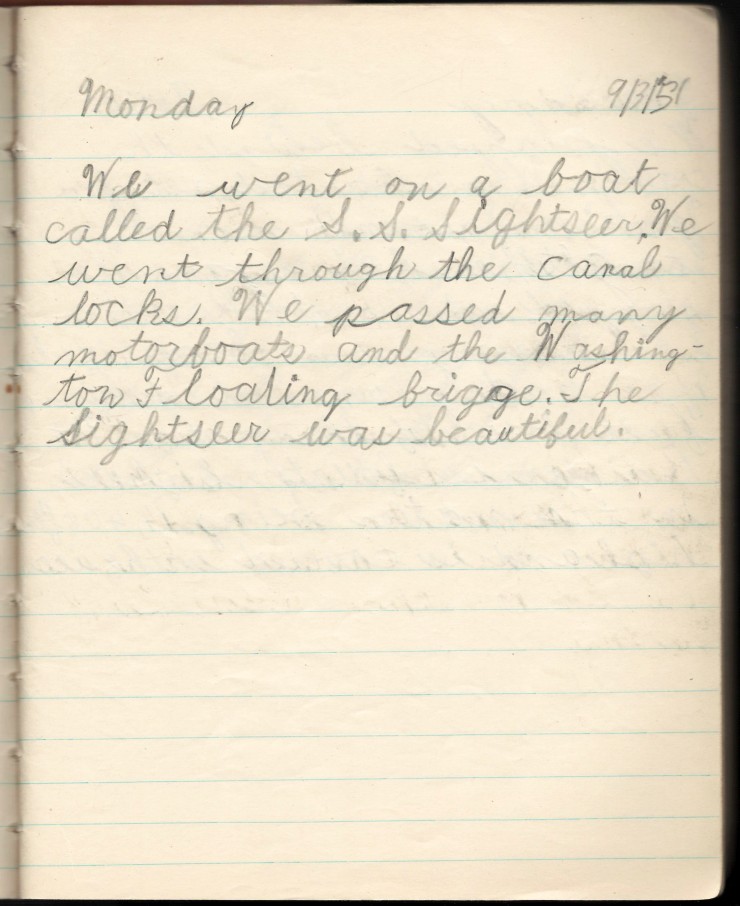 Monday 9/3/51
We went on a boat
called the S. S. Sightseer. We
went through the canal
locks. We passed many
motorboats and the Washing-
ton Floating brigge. The
Sightseer was beautiful.